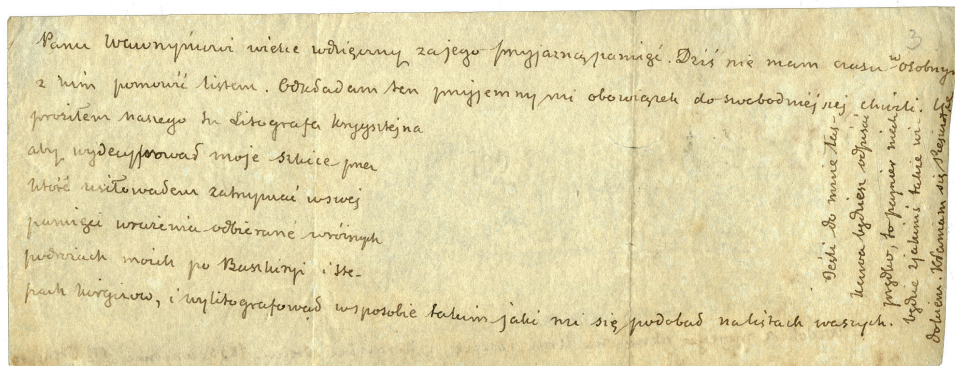 Panu Wawrzyńcowi wielce wdzięczny za jego przyjazną pamięć. Dziś nie mam czasu w osobnym
z nim pomówić listem. Odkładam ten przyjemny mi obowiązek do swobodniejszej chwili. U
prosiłem naszego tu Litografa
aby wydecyfrował moje szkice przez
które usiłowałem zatrzymać w swej
pamięci wrażenia odbierane w różnych
podróżach moich po Baszkiryi i ste-
pach Kirgizow, i wylitografował w sposobie takim jaki mi się podobał na listach waszych.
Jeśli do mnie łas-
kawa będziesz odpisać
prędko, to papier niech
będzie z jakimiś takie wi-
dokiem. Kłaniam się
3